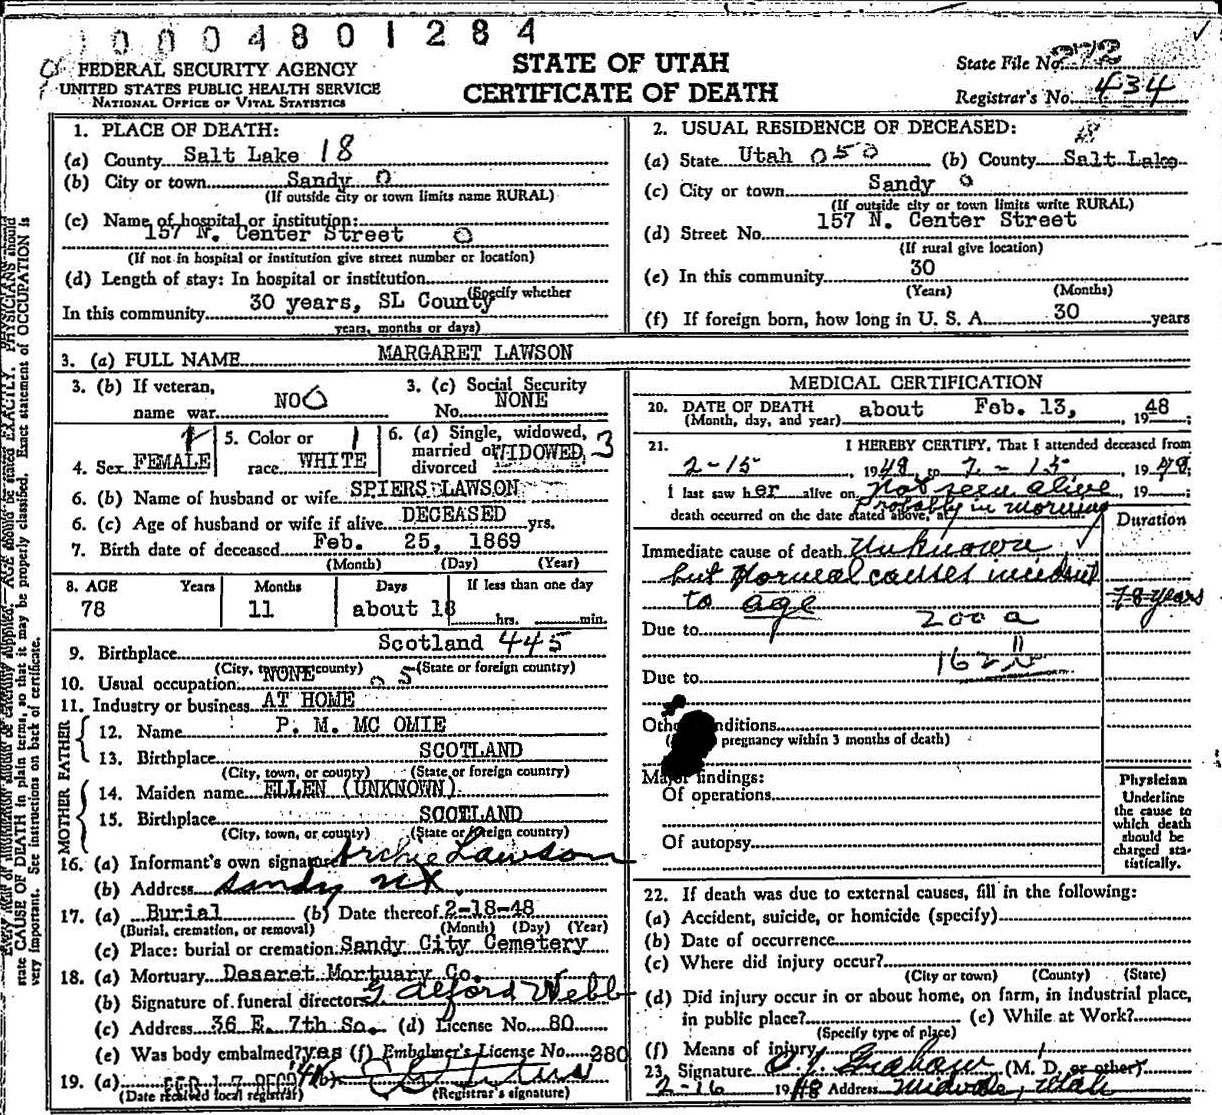 0004801284
FEDERAL SECURITY AGENCY
UNITED STATES PUBLIC HEALTH SERVICE
NATIONAL OFFICE OF VITAL STATISTICS
STATE OF UTAH
CERTIFICATE OF DEATH
State File No. 272
Registrar's No. 434
1. PLACE OF DEATH:
(a) County Salt Lake 18
(b) City or town Sandy 0
(If outside city or town limits name RURAL)
(c) Name of hospital or institution:
157 N. Center Street 0
(If not in hospital or institution give street number or location)
(d) Length of stay: In hospital or institution
(Specify whether
In this community 30 years, SL County
years, months or days)
2. USUAL RESIDENCE OF DECEASED:
18
(a) State Utah 050 (b) County Salt Lake
(c) City or town Sandy 0
(If outside city or town limits write RURAL)
(d) Street No. 157 N. Center Street
(If rural give location)
(e) In this community 30
(Years) (Months)
(f) If foreign born, how long in U. S. A. 30 years
3. (a) FULL NAME MARGARET LAWSON
3. (b) If veteran, name war NO 0
3. (c) Social Security No. NONE
4. Sex FEMALE
5. Color or race WHITE 1
6. (a) Single, widowed, married or divorced WIDOWED 3
6. (b) Name of husband or wife SPIERS LAWSON
6. (c) Age of husband or wife if alive DECEASED yrs.
7. Birth date of deceased Feb. 25, 1869
(Month) (Day) (Year)
8. AGE Years Months Days If less than one day
78 11 about 18 hrs. min.
9. Birthplace Scotland 445
(City, town, or county) (State or foreign country)
10. Usual occupation NONE 05
11. Industry or business AT HOME
FATHER
12. Name P. M. MC OMIE
13. Birthplace SCOTLAND
(City, town, or county) (State or foreign country)
MOTHER
14. Maiden name ELLEN (UNKNOWN)
15. Birthplace SCOTLAND
(City, town, or county) (State or foreign country)
16. (a) Informant's own signature Archie Lawson
(b) Address Sandy
17. (a) Burial (b) Date thereof 2-18-48
(Burial, cremation, or removal) (Month) (Day) (Year)
(c) Place: burial or cremation Sandy City Cemetery
18. (a) Mortuary Deseret Mortuary Co.
(b) Signature of funeral director Webb
(c) Address 36 E. 7th So. (d) License No. 80
(e) Was body embalmed? yes (f) Embalmer's License No. 280
19. (a) FEB 17 (b)
(Date received local registrar) (Registrar's signature)
MEDICAL CERTIFICATION
20. DATE OF DEATH about Feb. 13, 1948;
(Month, day, and year)
21. I HEREBY CERTIFY, That I attended deceased from
2-15, 1948, to 2-15, 1948;
I last saw her alive on not seen alive, 19
death occurred on the date stated above, at Probably in morning
Duration
Immediate cause of death Unknown
but normal causes incident
to age 78 years
Due to 200 a
162
Due to
Other conditions
pregnancy within 3 months of death)
Major findings:
Of operations
Of autopsy
Physician
Underline
the cause to
which death
should be
charged sta-
tistically.
22. If death was due to external causes, fill in the following:
(a) Accident, suicide, or homicide (specify)
(b) Date of occurrence
(c) Where did injury occur?
(City or town) (County) (State)
(d) Did injury occur in or about home, on farm, in industrial place,
in public place? (e) While at Work?
(Specify type of place)
(f) Means of injury
23. Signature Graham (M. D. or other)
2-16 1948 Address Midvale, Utah
state CAUSE OF DEATH in plain terms, so that it may be properly classified. Exact statement of OCCUPATION is
very important. See instructions on back of certificate.